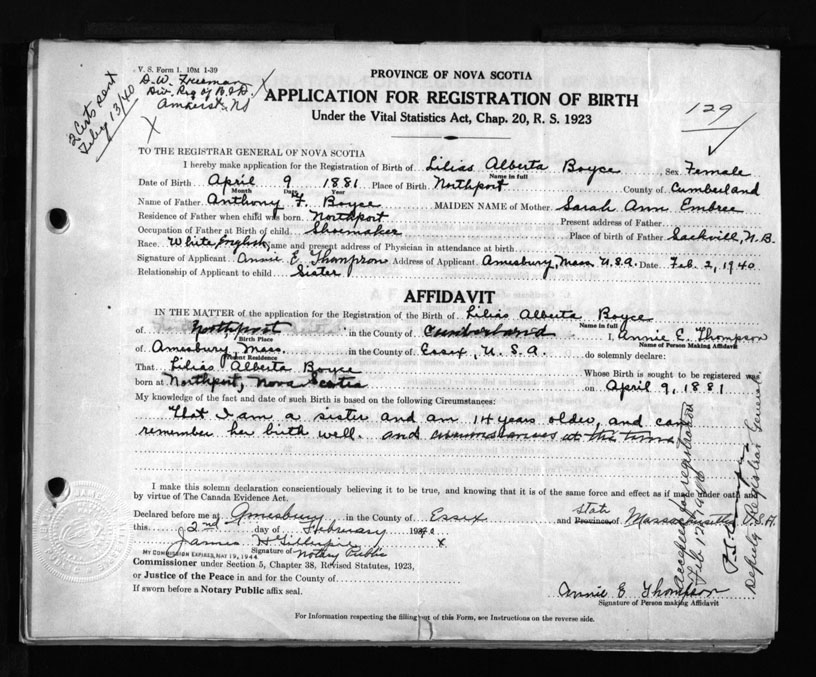 V. S. Form 1. 10M 1-39
D. W. Freeman
Div. Reg of B. & D.
Amherst, NS
2 Certs sent
Feby 13/40
PROVINCE OF NOVA SCOTIA
APPLICATION FOR REGISTRATION OF BIRTH
Under the Vital Statistics Act, Chap. 20, R. S. 1923
129
TO THE REGISTRAR GENERAL OF NOVA SCOTIA
I hereby make application for the Registration of Birth of Lilias Alberta Boyce Sex Female
Name in full
Date of Birth April 9 1881 Place of Birth Northport County of Cumberland
Month Day Year
Name of Father Anthony F. Boyce MAIDEN NAME of Mother Sarah Ann Embree
Residence of Father when child was born Northport Present address of Father
Occupation of Father at Birth of child Shoemaker Place of birth of Father Sackvill, N. B.
Race White English Name and present address of Physician in attendance at birth
Signature of Applicant Annie E Thompson Address of Applicant Amesbury, Mass. U. S. A. Date Feb. 2, 1940
Relationship of Applicant to child Sister
AFFIDAVIT
IN THE MATTER of the application for the Registration of the Birth of Lilias Alberta Boyce
Name in full
of Northport in the County of Cumberland I, Annie E. Thompson
Birth Place Name of Person Making Affidavit
of Amesbury, Mass. in the County of Essex, U. S. A. do solemnly declare:
Present Residence
That Lilias Alberta Boyce Whose Birth is sought to be registered was
born at Northport, Nova Scotia on April 9, 1881
My knowledge of the fact and date of such Birth is based on the following Circumstances:
That I am a sister and am 14 years older, and can
remember her birth well. and circumstances at the time
I make this solemn declaration conscientiously believing it to be true, and knowing that it is of the same force and effect as if made under oath and
by virtue of The Canada Evidence Act.
Declared before me at Amesbury in the County of Essex and state Province of Massachusetts U. S. A.
this 2nd day of February 1940
James H Gillespie X
MY COMMISSION EXPIRES MAY 19, 1944 Signature of Notary Public
Commissioner under Section 5, Chapter 38, Revised Statutes, 1923,
or Justice of the Peace in and for the County of
If sworn before a Notary Public affix seal.
Annie E Thompson
Signature of Person making Affidavit
For Information respecting the filling out of this Form, see Instructions on the reverse side.
Accepted for registration
Feb 12 1940
Deputy Registrar General